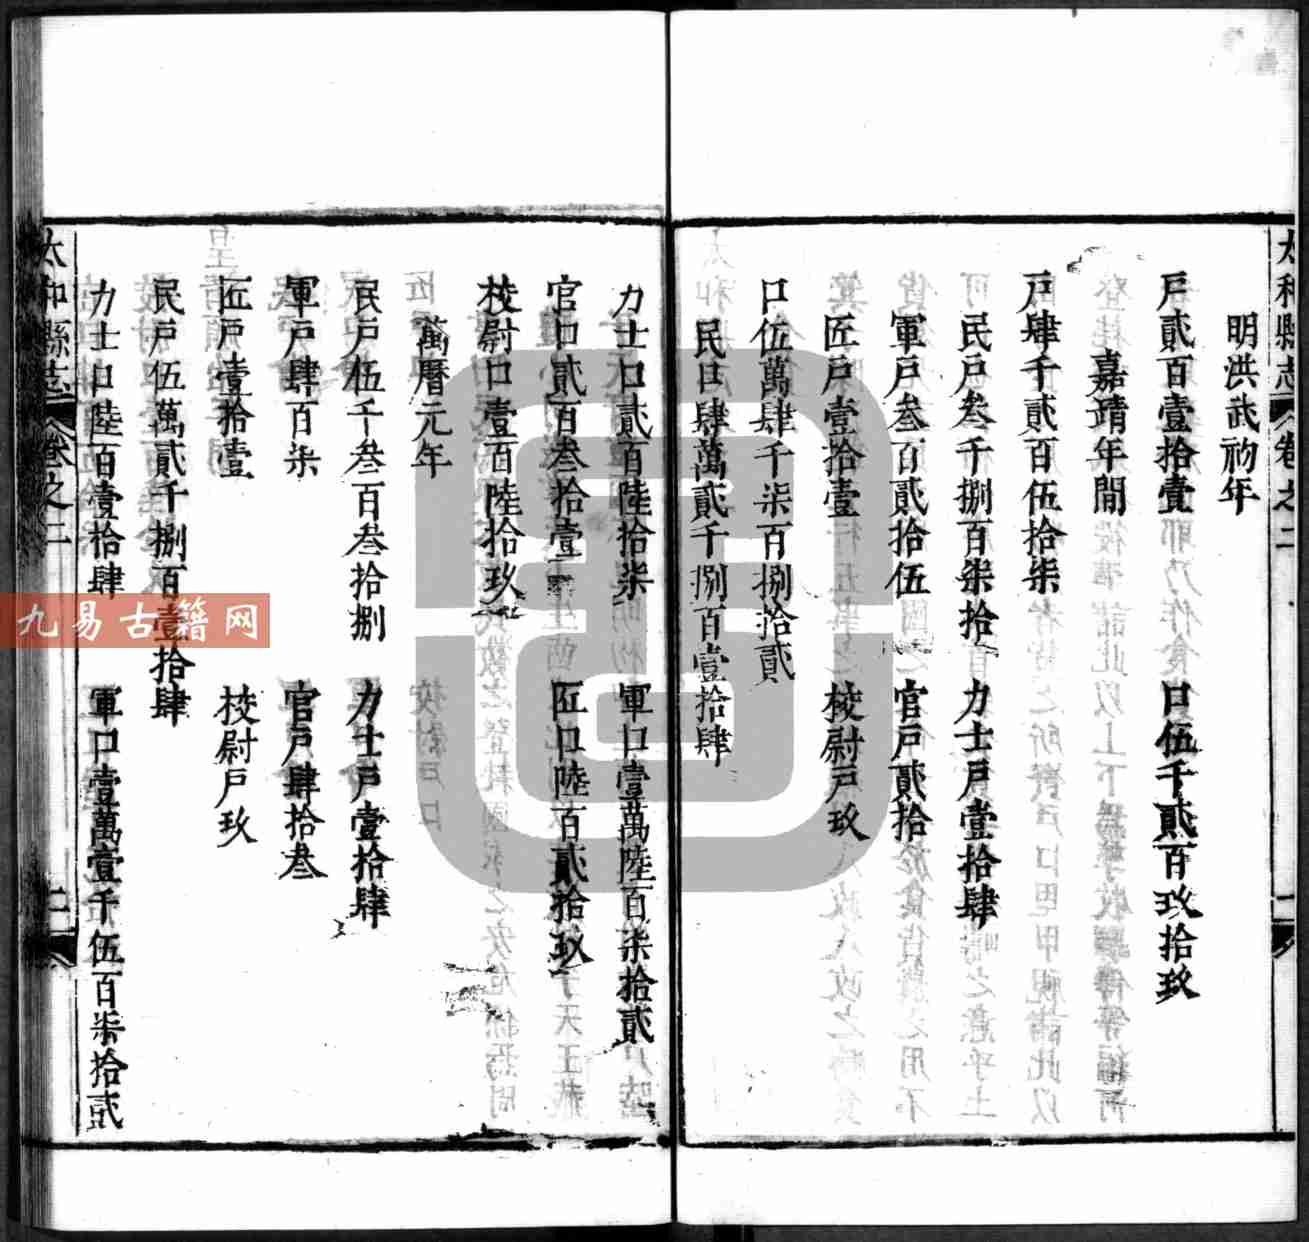 太和縣志 卷之二
明洪武初年
戶貳百壹拾壹 口伍千貳百玖拾玖
嘉靖年間
戶肆千貳百伍拾柒
民戶叁千捌百柒拾 力士戶壹拾肆
軍戶叁百貳拾伍 官戶貳拾
匠戶壹拾壹 校尉戶玖
口伍萬肆千柒百捌拾貳
民口肆萬貳千捌百壹拾肆
力士口貳百陸拾柒 軍口壹萬陸百柒拾貳
官口貳百叁拾壹 匠口陸百貳拾玖
校尉口壹百陸拾玖
萬曆元年
民戶伍千叁百叁拾捌 力士戶壹拾肆
軍戶肆百柒 官戶肆拾叁
匠戶壹拾壹 校尉戶玖
民戶伍萬貳千捌百壹拾肆
力士口陸百壹拾肆 軍口壹萬壹千伍百柒拾貳
太和縣志 卷之二 二
九易古籍网